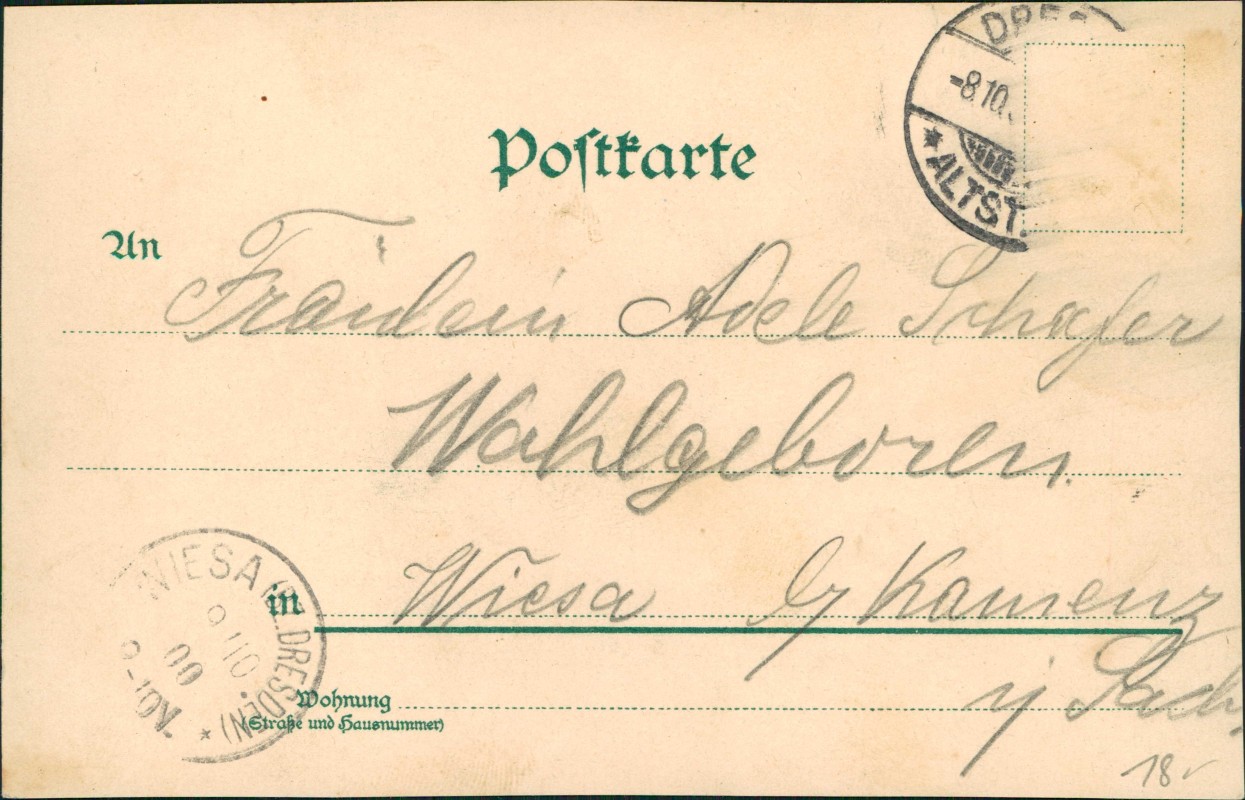 DRES
-8.10.
* ALTST.
Postkarte
An Fräulein Adele Schäfer
Wohlgeboren.
in Wiesa b/ Kamenz
i/ Sach
Wohnung
(Straße und Hausnummer)
WIESA (BZ. DRESDEN) *
9/10.
00
8-10V.
18